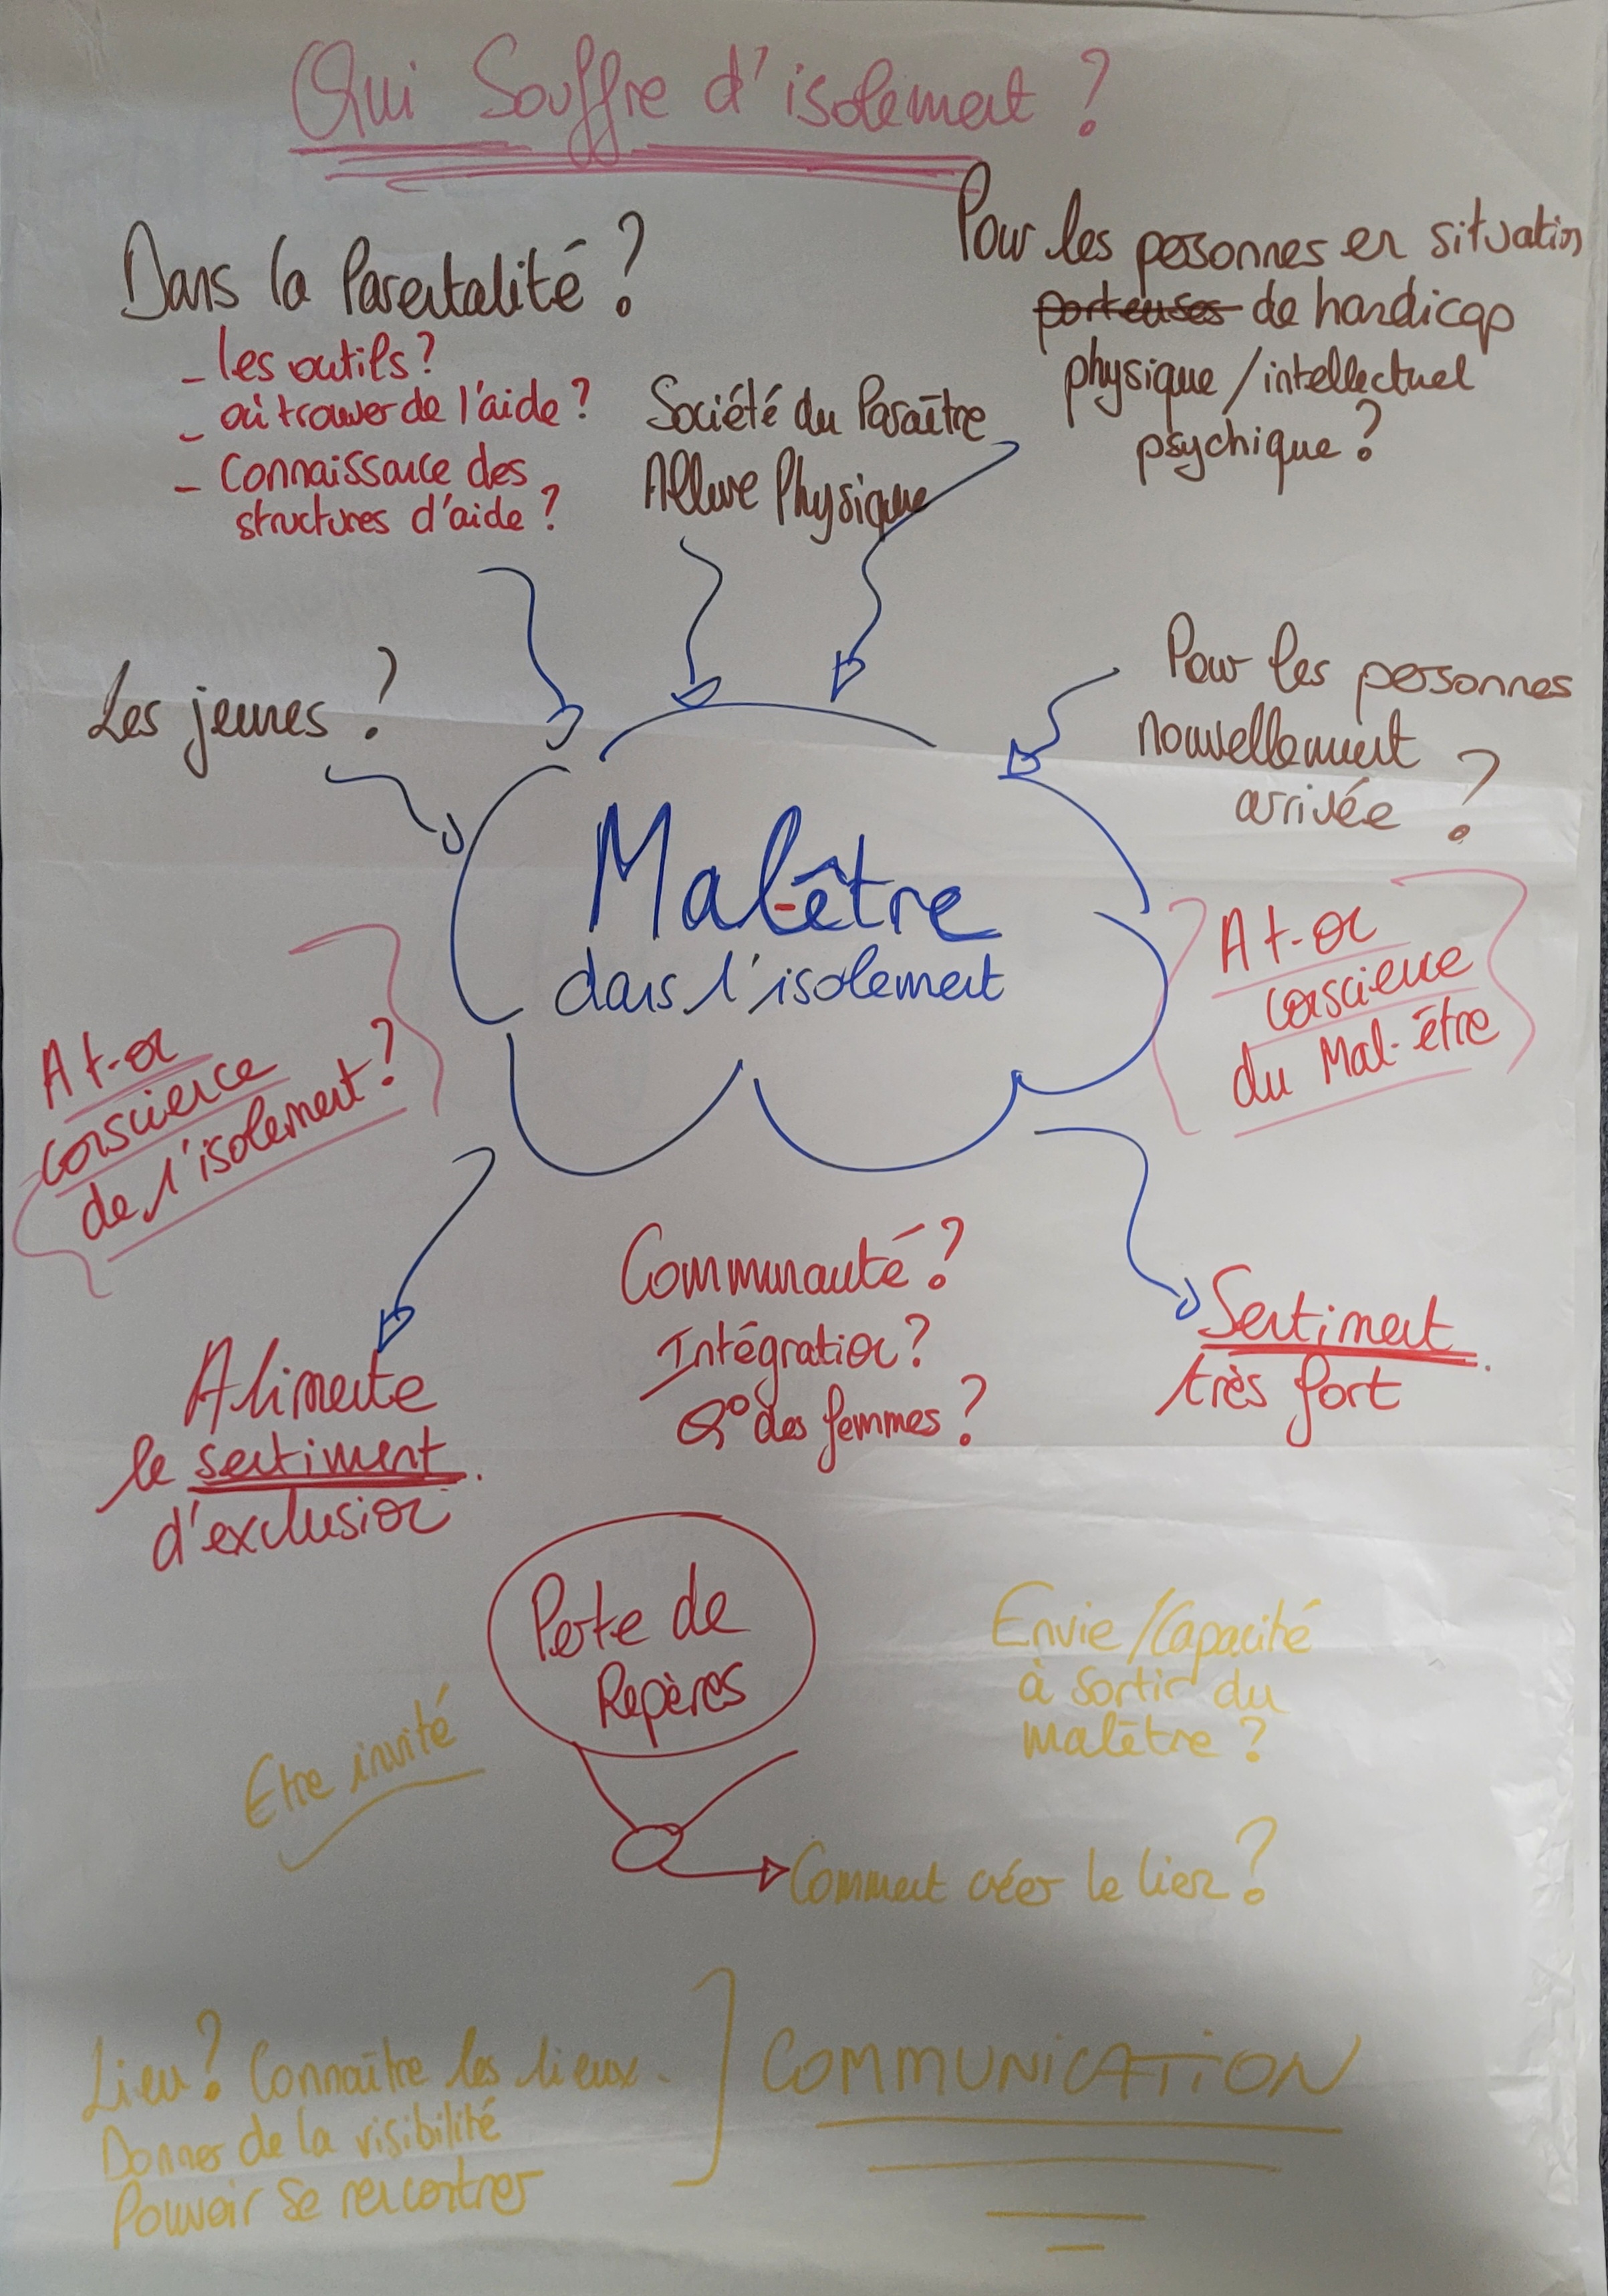 Qui Souffre d'isolement ?
Dans la Parentalité ?
- les outils ?
- où trouver de l'aide ?
- Connaissance des
structures d'aide ?
Société du Paraître
Allure Physique
Pour les personnes en situation
porteuses de handicap
physique / intellectuel
psychique ?
Les jeunes ?
Pour les personnes
nouvellement
arrivée ?
Mal-être
dans l'isolement
A t-on
conscience
de l'isolement ?
A t-on
conscience
du Mal-être
Alimente
le sentiment.
d'exclusion
Communauté ?
Intégration ?
Q° des femmes ?
Sentiment.
très fort
Perte de
Repères
Etre invité
Envie / Capacité
à sortir du
malêtre ?
Comment créer le lien ?
Lieu ? Connaître les lieux.
Donner de la visibilité
Pouvoir se rencontrer
COMMUNICATION